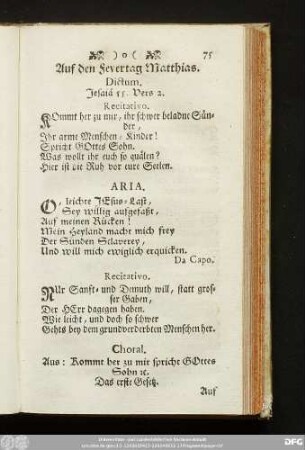 ) o ( 75
Auf den Feyertag Matthias.
Dictum.
Jesaiä 55. Vers 2.
Recitativo.
KOmmt her zu mir, ihr schwer beladne Sün-
der,
Ihr arme Menschen-Kinder!
Spricht GOttes Sohn.
Was wollt ihr euch so quälen?
Hier ist die Ruh vor eure Seelen.
ARIA.
O, leichte JEsus-Last,
Sey willig aufgefaßt,
Auf meinen Rücken!
Mein Heyland macht mich frey
Der Sünden Sclaverey,
Und will mich ewiglich erquicken.
Da Capo.
Recitativo.
NUr Sanft- und Demuth will, statt gros-
ser Gaben,
Der HErr dagegen haben.
Wie leicht, und doch so schwer
Gehts bey dem grundverderbten Menschen her.
Choral.
Aus: Kommt her zu mir spricht GOttes
Sohn ꝛc.
Das erste Gesetz.
Auf
DFG